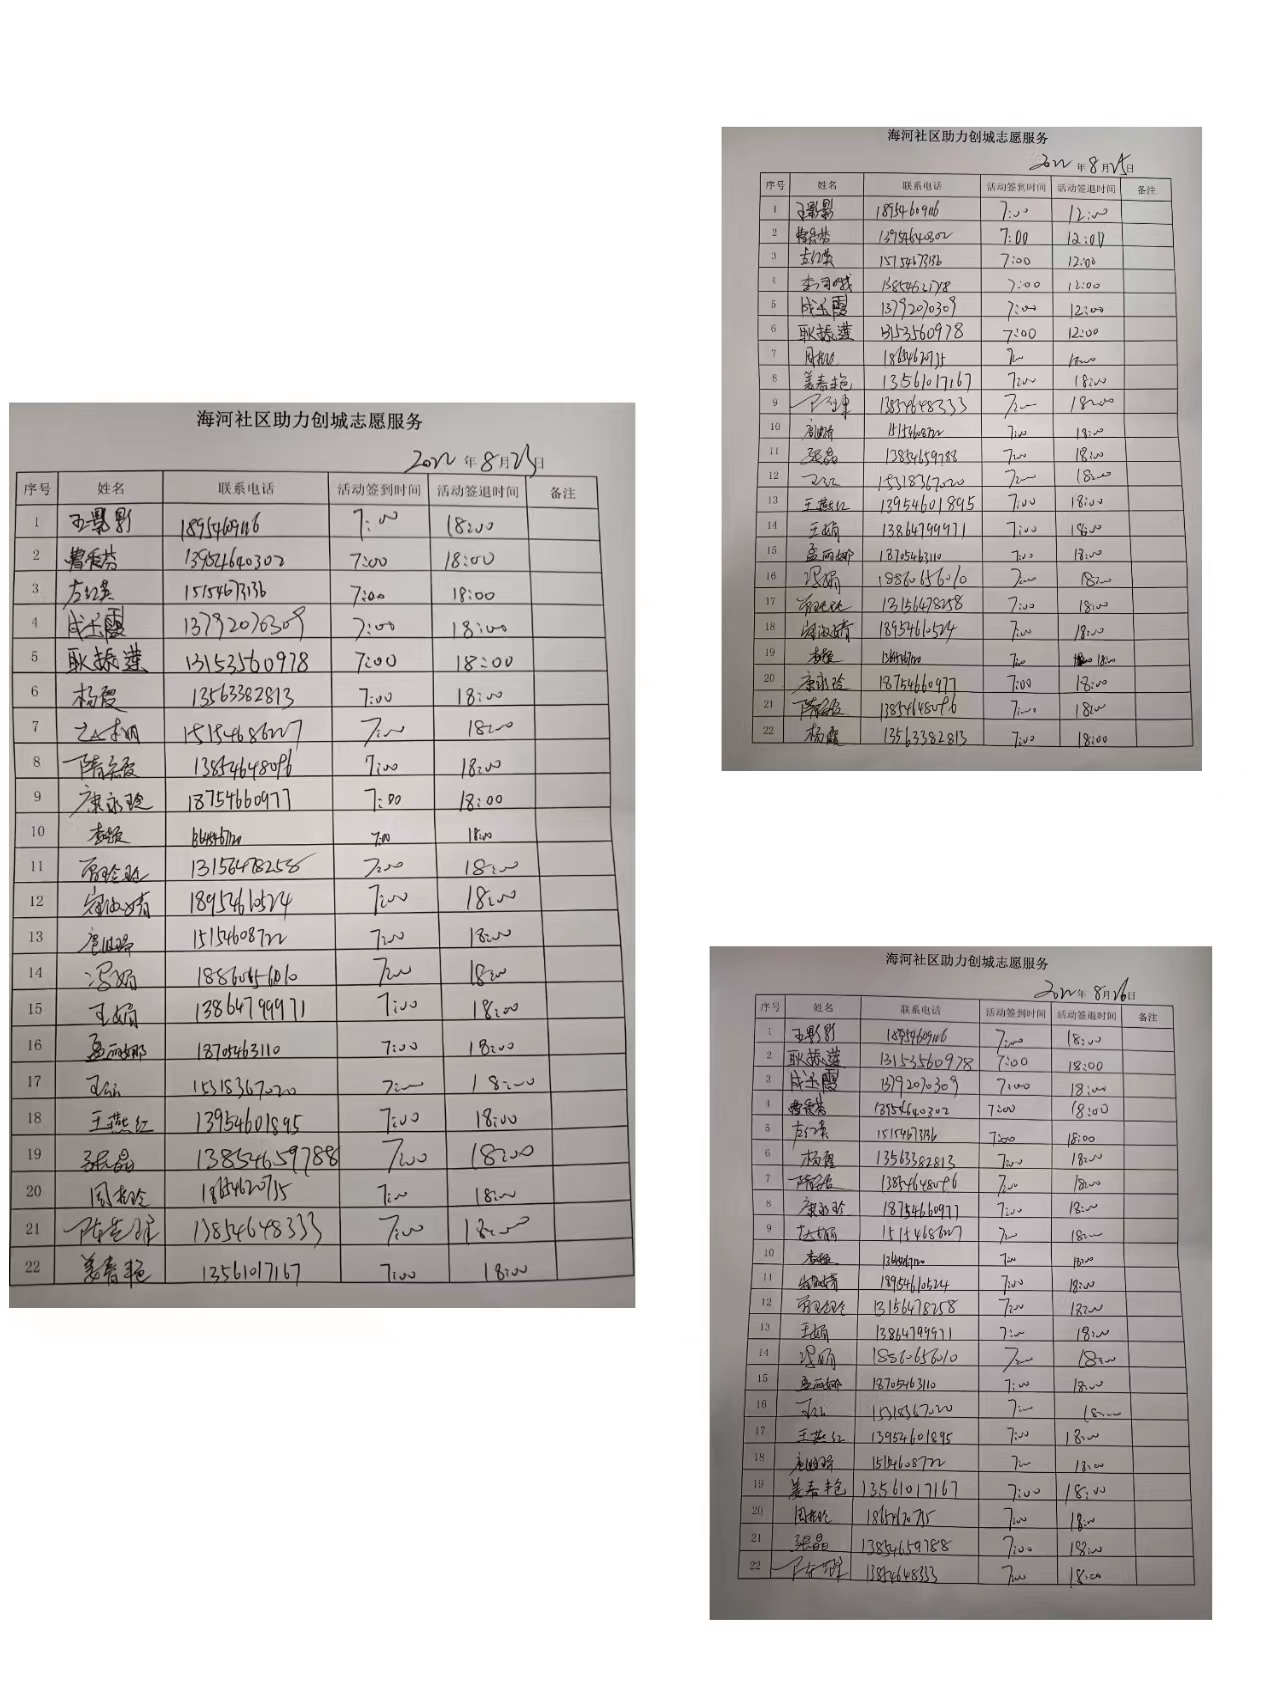 海河社区助力创城志愿服务
2022年8月23日
序号 姓名 联系电话 活动签到时间 活动签退时间 备注
1 王影影 18954609116 7:00 18:00
2 曹爱芬 13954640302 7:00 18:00
3 左红英 15154673136 7:00 18:00
4 成玉霞 13792070309 7:00 18:00
5 耿振莲 13153560978 7:00 18:00
6 杨霞 13563382813 7:00 18:00
7 15154686227 7:00 18:00
8 13854648096 7:00 18:00
9 康永玲 18754660977 7:00 18:00
10 7:00 18:00
11 13156478258 7:00 18:00
12 18954610524 7:00 18:00
13 15154608722 7:00 18:00
14 冯娟 18860656010 7:00 18:00
15 王娟 13864799971 7:00 18:00
16 孟丽娜 18705463110 7:00 18:00
17 15318367020 7:00 18:00
18 王燕红 13954601895 7:00 18:00
19 张晶 13854659788 7:00 18:00
20 18654620735 7:00 18:00
21 13854648333 7:00 18:00
22 姜春艳 13561017167 7:00 18:00
海河社区助力创城志愿服务
2022年8月25日
序号 姓名 联系电话 活动签到时间 活动签退时间 备注
1 王影影 18954609116 7:00 12:00
2 曹爱芬 13954640302 7:00 12:00
3 左红英 15154673136 7:00 12:00
4 7:00 12:00
5 成玉霞 13792070309 7:00 12:00
6 耿振莲 13153560978 7:00 12:00
7 18654620735 7:00 18:00
8 姜春艳 13561017167 7:00 18:00
9 13854648333 7:00 18:00
10 15154608722 7:00 18:00
11 张晶 13854659788 7:00 18:00
12 15318367020 7:00 18:00
13 王燕红 13954601895 7:00 18:00
14 王娟 13864799971 7:00 18:00
15 孟丽娜 18705463110 7:00 18:00
16 冯娟 18860656010 7:00 18:00
17 13156478258 7:00 18:00
18 18954610524 7:00 18:00
19 7:00 18:00
20 康永玲 18754660977 7:00 18:00
21 13854648096 7:00 18:00
22 杨霞 13563382813 7:00 18:00
海河社区助力创城志愿服务
2022年8月26日
序号 姓名 联系电话 活动签到时间 活动签退时间 备注
1 王影影 18954609116 7:00 18:00
2 耿振莲 13153560978 7:00 18:00
3 成玉霞 13792070309 7:00 18:00
4 曹爱芬 13954640302 7:00 18:00
5 左红英 15154673136 7:00 18:00
6 杨霞 13563382813 7:00 18:00
7 13854648096 7:00 18:00
8 康永玲 18754660977 7:00 18:00
9 15154686227 7:00 18:00
10 7:00 18:00
11 18954610524 7:00 18:00
12 13156478258 7:00 18:00
13 王娟 13864799971 7:00 18:00
14 冯娟 18860656010 7:00 18:00
15 孟丽娜 18705463110 7:00 18:00
16 15318367020 7:00 18:00
17 王燕红 13954601895 7:00 18:00
18 15154608722 7:00 18:00
19 姜春艳 13561017167 7:00 18:00
20 18654620735 7:00 18:00
21 张晶 13854659788 7:00 18:00
22 13854648333 7:00 18:00